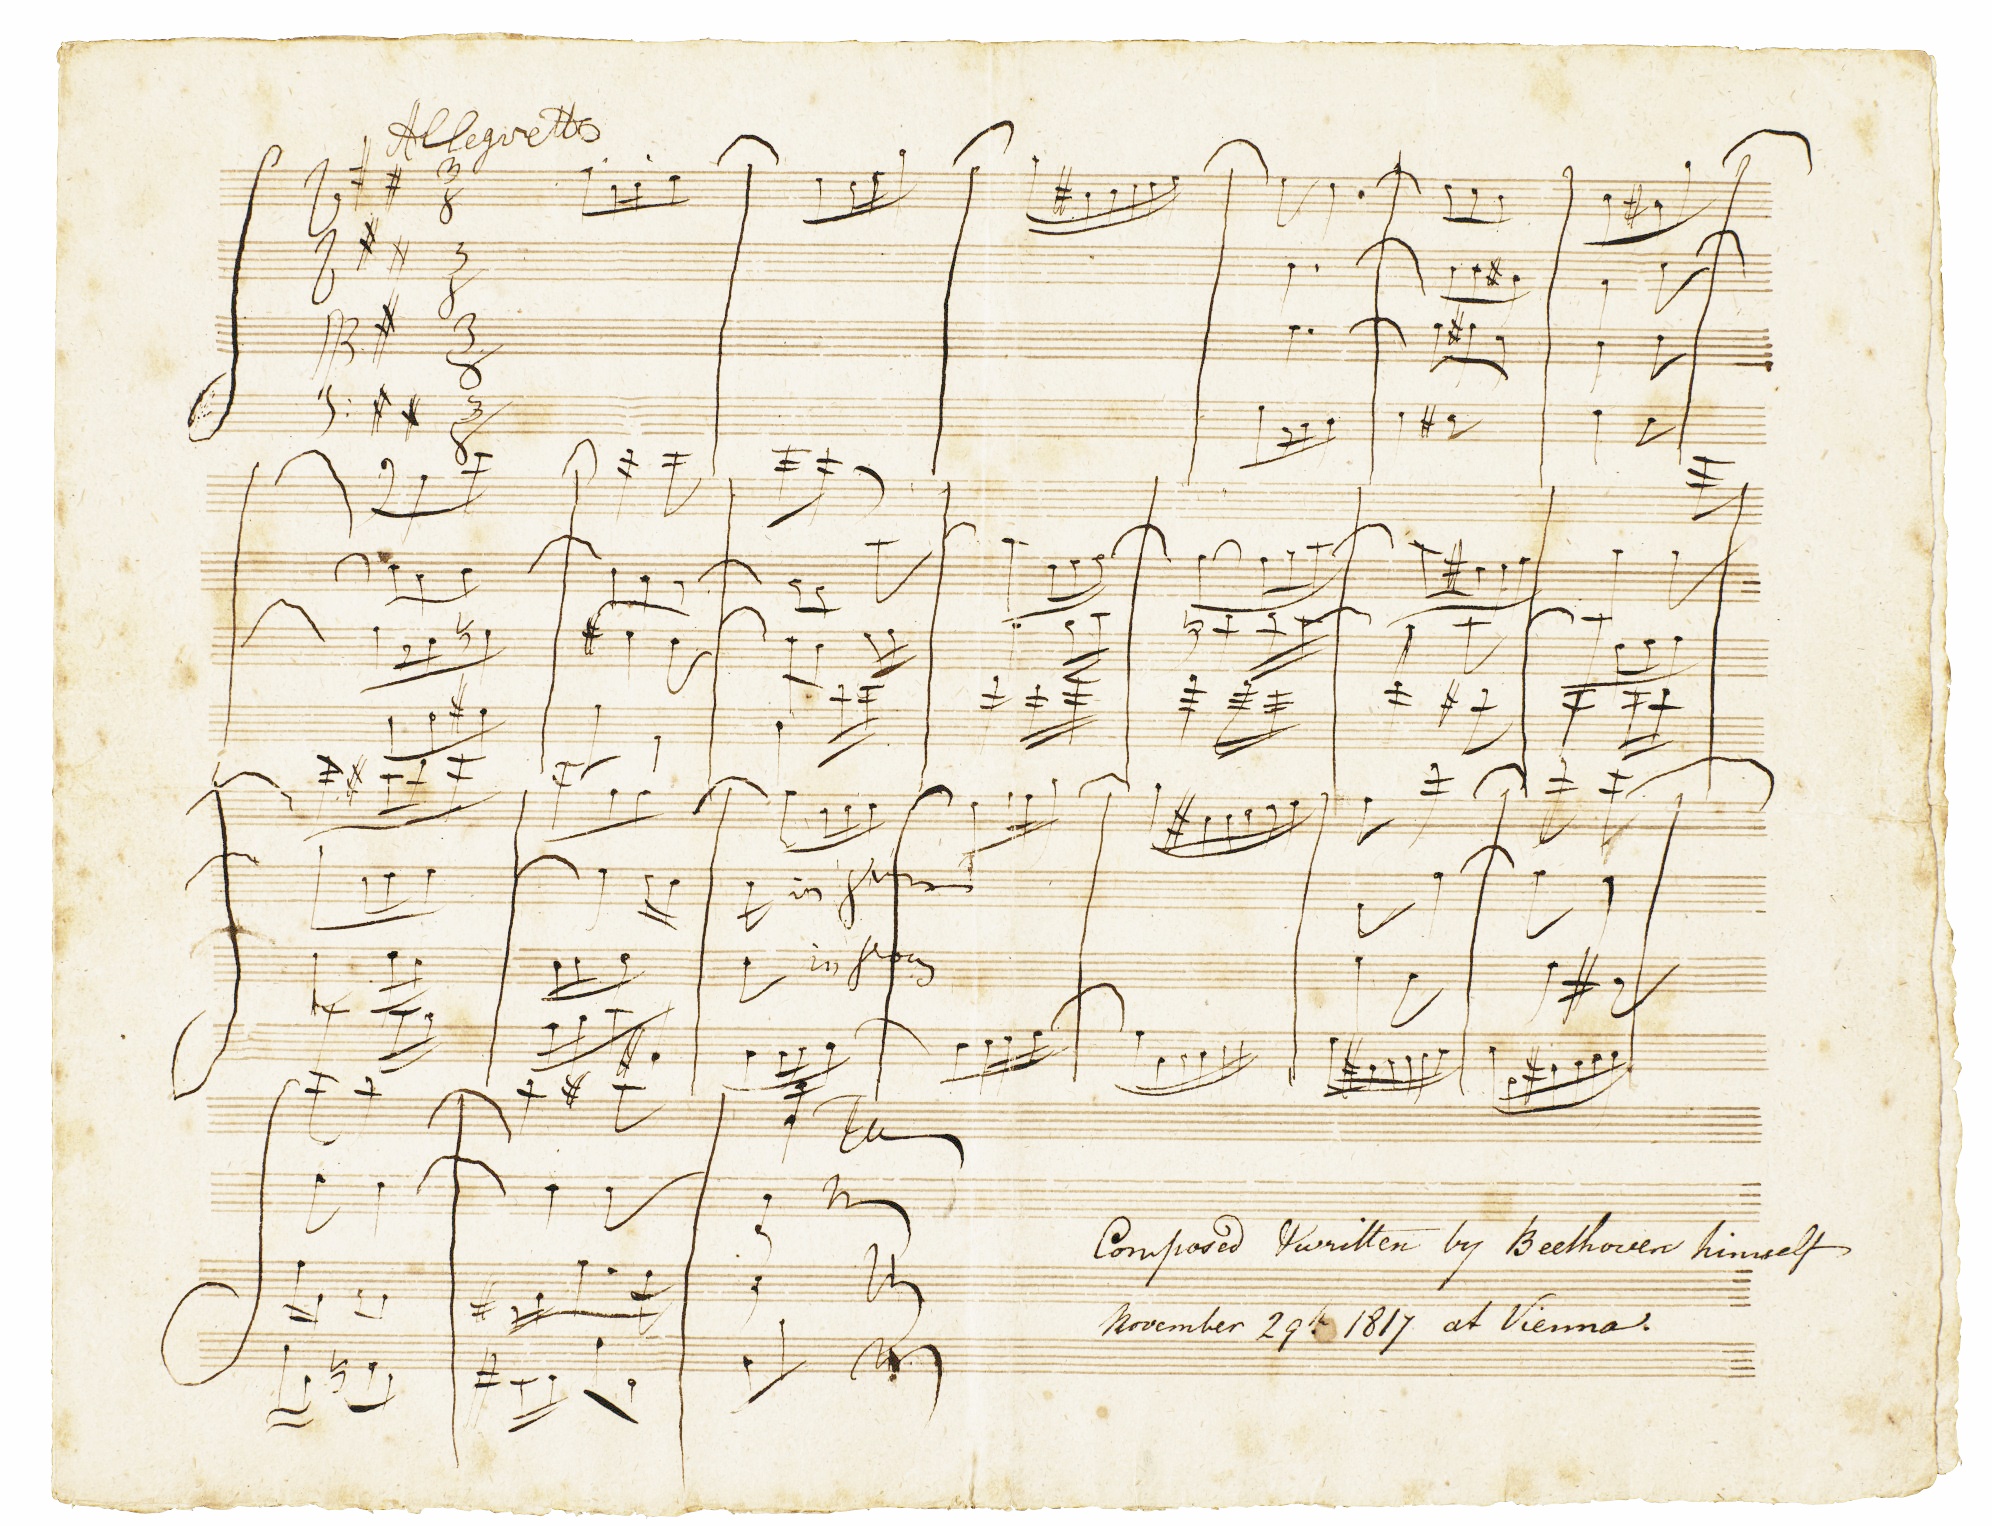 Allegretto
3
8
3
8
3
8
3
8
Composed & written by Beethoven himself
November 29th 1817 at Vienna.